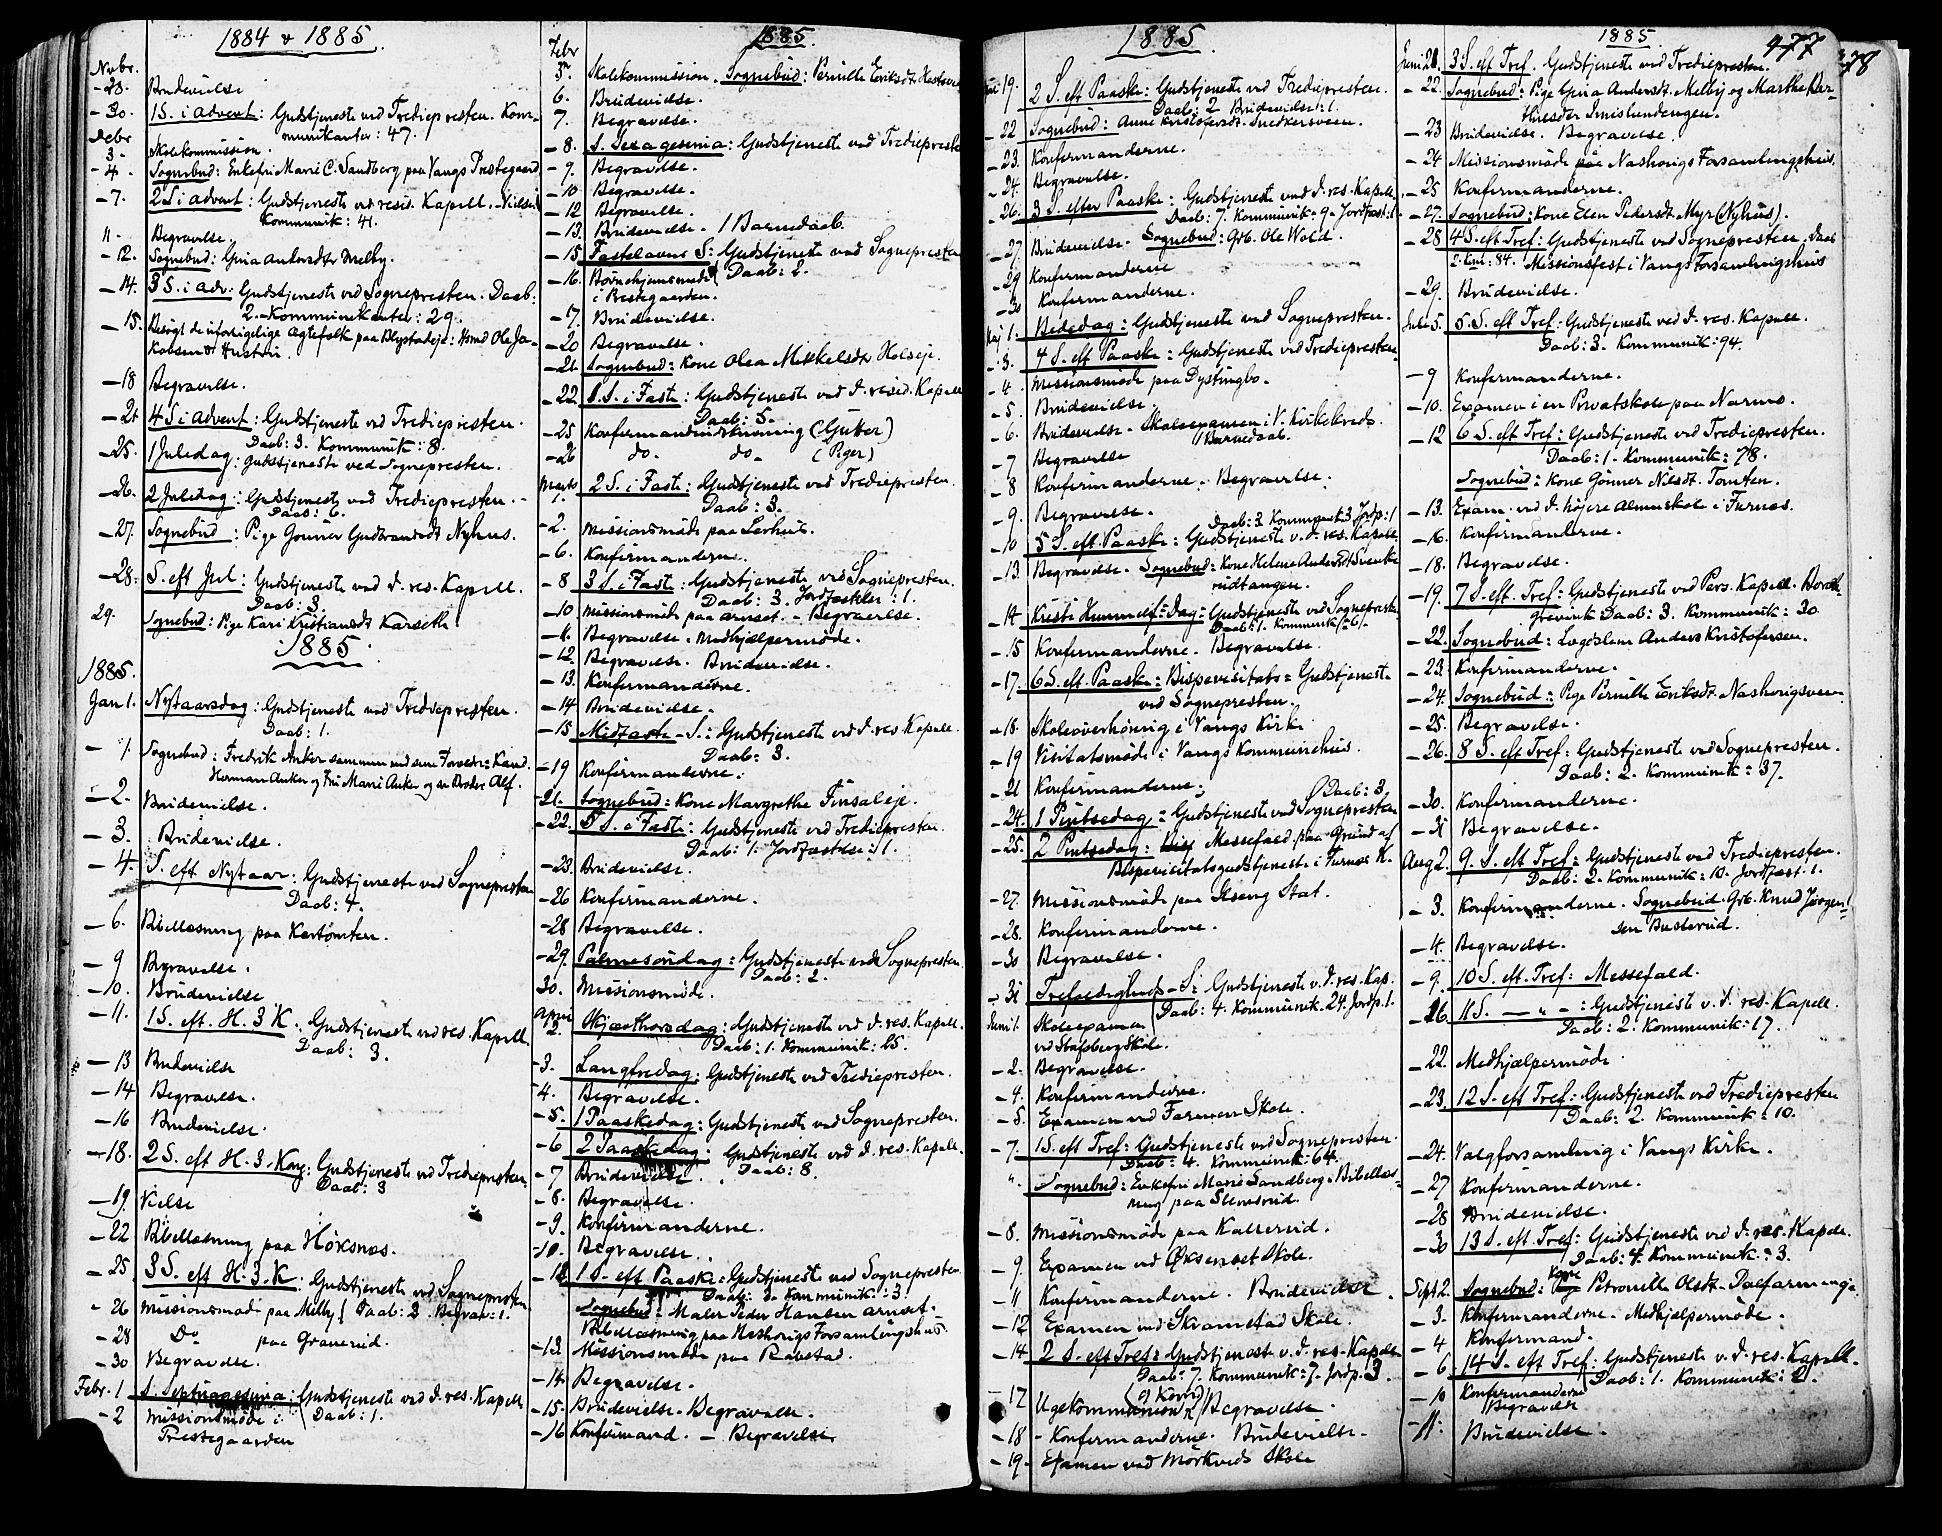 1884 & 1885.
Nvbr.
- 28. Brudevielse
- 30. 1 S. i Advent: Gudstjeneste ved Trediepresten. Kom-
munikanter: 47.
Decbr
3 - Skolekommission.
- 4. Sognebud: Enkefru Marie C. Sandberg paa Vangs Prestegaard
- 7. 2 S i Advent: Gudstjeneste ved resid. Kapell. Vielse
Kommunik: 41.
11 - Begravelse
- 12. Sognebud: Gina Andersdtr Melby.
- 14. 3 S. i Adv: Gudstjeneste ved Sognepresten. Daab:
2. Kommunikanter: 29.
- 15. Besøgt de uforligelige Ægtefolk paa Blystadeje: Ole Ja-
kobsen & Hustru.
- 18 Begravelse.
- 21 4 S i Advent: Gudstjeneste ved Trediepresten.
Daab: 3. Kommunik: 8.
- 25. 1 Juledag: Gudstjeneste ved Sognepresten.
- 26. 2 Juledag: Gudstjeneste ved Trediepresten. -
Daab: 6.
- 27. Sognebud: Pige Gouner Gudbrandsdt Nyhus.
- 28. S. eft Jul: Gudstjeneste ved d. res. Kapell.
Daab: 3.
29. Sognebud: Pige Kari Kristiansdt Karseth
1885.
1885.
Jan 1. Nytaarsdag: Gudstjeneste ved Trediepresten.
Daab: 1.
- 1. Sognebud: Fredrik Anker sammen med sine Forældre: Kand.
Herman Anker og Fru Marie Anker og sin Broder Alf.
- 2. Brudevielse.
- 3. Brudevielse.
- 4. S. eft Nytaar: Gudstjeneste ved Sognepresten
Daab: 4.
- 6. Bibellæsning paa Kartomten.
- 9 Begravelse.
- 10. Brudevielse
- 11. 1 S. eft. H. 3 K.: Gudstjeneste ved res. Kapell.
Daab: 3.
- 13 Brudevielse
- 14 Begravelse.
- 16 Brudevielse.
- 18. 2 S. eft H. 3. Kong: Gudstjeneste ved Trediepresten.
Daab: 3
- 19. Vielse
- 22 Bibellæsning paa Høksnæs.
- 25 3 S. eft H. 3. K: Gudstjeneste ved Sognepresten
- 26 Missionsmøde paa Melby { Daab: 2. Begrav: 1.
- 28 Do paa Granerud.
- 30 Begravelse.
Febr. 1 S. Septuagesima: Gudstjeneste ved d. res. Kapell
- 2 Missionsmøde i ( Daab: 1.
Prestegaarden
1885.
Febr
5. Skolekommission. Sognebud: Pernille Eriksdt
6. Brudevielse.
7. Begravelse.
- 8. S. Sexagesima: Gudstjeneste ved Trediepresten
- 9. Begravelse.
- 10 Begravelse.
- 12 Begravelse.
- 13. Brudevielse. 1 Barnedaab.
- 15 Fastelavns S: Gudstjeneste ved Sognepresten
- 16. Børnehjemsmøde ( Daab: 2.
i Prestegaarden.
- 17. Brudevielse.
- 20 Begravelse.
- 21 Sognebud: Kone Olea Mikkelsdtr Holseje.
- 22. 1 S. i Faste: Gudstjeneste ved d. resid. Kapell
Daab: 5.
- 25 Konfirmandindskrivning (Gutter)
- 26 do. do. (Piger)
Marts
1. 2 S. i Faste: Gudstjeneste ved Trediepresten.
Daab: 3.
- 2. Missionsmøde paa Lerhus.
- 6. Konfirmanderne.
- 8 3 S. i Faste: Gudstjeneste ved Sognepresten.
Daab: 3. Jordfæstelser: 1.
- 10 Missionsmøde paa Arnset. - Begravelse.
- 11. Begravelse. Medhjælpermøde.
- 12. Begravelse. Brudevielse.
- 13. Konfirmanderne.
- 14 Brudevielse.
- 15 Midfaste - S.: Gudstjeneste ved d. res Kapell.
Daab: 3.
- 19 Konfirmanderne.
- 21. Sognebud: Kone Margrethe Finsaleje.
- 22. 5 S. i Faste: Gudstjeneste ved Trediepresten.
Daab: 1. Jordfæstelse: 1.
- 23. Brudevielse.
- 26 Konfirmanderne.
- 28 Begravelse.
- 29. Palmesøndag: Gudstjeneste ved Sognepresten.
Daab: 2.
30. Missionsmøde.
April
2. Skjærthorsdag: Gudstjeneste ved d. res. Kapell.
Daab: 1. Kommunik: 25.
- 3. Langfredag: Gudstjeneste ved Trediepresten.
4. Begravelse.
- 5. 1 Paaskedag: Gudstjeneste ved Sognepresten.
- 6 2 Paaskedag: Gudstjeneste ved d. res. Kapell.
- 7 Brudevielse. Daab: 8.
- 8. Begravelse.
- 9. Konfirmanderne.
- 10. Begravelse.
- 12. 1 S. eft Paaske: Gudstjeneste ved Sognepresten
Daab: 3. Kommunik: 3.
Sognebud: Maler Peder Hansen Arnset.
Bibellæsning paa Nashougs Forsamlingshus.
- 13. Missionsmøde paa Rabstad.
- 14. Begravelse.
- 15. Brudevielse. Begravelse.
- 16 Konfirmand. - Begravelse.
1885.
19. 2 S. eft Paaske: Gudstjeneste ved Trediepresten.
Daab: 2 Brudevielse: 1.
- 22 Sognebud: Anne Kristofersdt. Snedkersveen.
- 23. Konfirmanderne.
- 24. Begravelse.
- 26. 3 S. efter Paaske: Gudstjeneste ved d. res. Kapell.
Daab: 7. Kommunik: 9. Jordfæst: 1
- 27. Brudevielse. Sognebud: Grb. Ole Wold.
- 29 Konfirmanderne
- 30 Konfirmanderne.
Maj 1. Bededag: Gudstjeneste ved Sognepresten.
- 3. 4 S. eft Paaske: Gudstjeneste ved Trediepresten
- 4 Missionsmøde paa Dystingbo.
- 5. Brudevielse.
- 6. Brudevielse. Skoleexamen i V. Kirkekreds.
1 Barnedaab.
- 7 Begravelse
- 8 Konfirmanderne. Begravelse.
- 9. Begravelse. Daab: 3 Kommunik: 3 Jordp: 1
- 10 5 S. eft. Paaske: Gudstjeneste v. d. res. Kapell
- 13. Begravelse. Sognebud: Kone Helene Andersdt Svenke
rudtangen.
- 14 Kristi Himmelf. Dag: Gudstjeneste ved Sognepresten
Daab: 1. Kommunik: 6.
- 15 Konfirmanderne. Begravelse.
- 17. 6 S. eft. Paaske: Bispevisitats = Gudstjeneste
ved Sognepresten.
- 18. Skoleoverhøring i Vangs Kirke.
- 19 Visitatsmøde i Vangs Kommunehus.
- 21 Konfirmanderne. Daab: 3
- 24. 1 Pintsedag: Gudstjeneste ved Sognepresten
- 25. 2 Pintsedag: Messefald paa Grund af
Bispevisitatsgudstjeneste i Furnes K.
- 27. Missionsmøde paa Iseng Stat.
- 28. Konfirmanderne.
- 30 Begravelse.
- 31 Trefoldigheds - S: Gudstjeneste v. d. res. Kap.
Juni 1. Skoleexamen ( Daab: 4. Kommunik: 24. Jordp. 1.
ved Stafsberg Skole.
- 2. Begravelse.
- 4. Konfirmanderne.
- 5. Examen ved Farmen Skole.
- 7. 1 S. eft Tref: Gudstjeneste ved Sognepresten.
Daab: 4. Kommunik: 64.
" Sognebud: Enkefru Marie Sandberg. Bibellæs-
ning paa Stensrud.
- 8. Missionsmøde paa Kallerud.
- 9 Examen ved Øksenset Skole.
- 11 Konfirmanderne. Brudevielse.
- 12 Examen ved Skramstad Skole.
- 14. 2 S. eft Tref: Gudstjenest v. d. res. Kapell
Daab: 7. Kommunik: 7. Jordp. 3.
- 17 Ugekommunion (og Konf) Begravelse.
- 18 - Konfirmanderne. Brudevielse.
- 19. Examen ved Mørkveds Skole
1885
477
Juni 21. 3 S. eft Tref. Gudstjeneste ved Trediepresten.
- 22. Sognebud: Pige Gina Andersdt. Melby og Marthe Bær-
Hinsder Smislundengen.
- 23 Brudevielse. Begravelse
- 24 Missionsmøde paa Nashougs Forsamlingshus.
- 25 Konfirmanderne.
- 27. Sognebud: Kone Elen Pedersdt. Myr (Nyhus).
- 28 4 S. eft Tref: Gudstjeneste ved Sognepresten. Daab
2. Kom: 84. Missionsfest i Vangs Forsamlingshus
- 29. Brudevielse.
Juli 5. 5. S. eft Tref: Gudstjeneste ved d. res. Kapell.
Daab: 3. Kommunik: 94.
- 9 Konfirmanderne.
- 10. Examen i en Privatskole paa Narmo.
- 12 6 S. eft Tref: Gudstjeneste ved Trediepresten.
Daab: 1. Kommunik: 78.
Sognebud: Kone Gønner Nilsdt. Tomten.
- 13. Exam. ved d. højere Almuskole i Furnæs.
- 16. Konfirmanderne.
- 18. Begravelse.
- 19. 7 S. eft Tref: Gudstjeneste ved Pers. Kapell. Borch-
grevink Daab: 3. Kommunik: 30.
- 22. Sognebud: Lægdslem Anders Kristofersen.
- 23. Konfirmanderne.
- 24. Sognebud: Pige Pernille Eriksdt. Nashougsveen.
- 25. Begravelse.
- 26. 8 S. eft Tref: Gudstjeneste ved Sognepresten.
Daab: 2. Kommunik: 37.
- 30. Konfirmanderne.
- 31 Begravelse.
Aug 2. 9. S. eft Tref: Gudstjeneste ved Trediepresten.
Daab: 2. Kommunik: 10. Jordfæst. 1.
- 3. Konfirmanderne. Sognebud. Grb. Knud Jørgen-
sen Busterud.
- 4. Begravelse.
- 9. 10 S. eft. Tref: Messefald.
- 16. 11 S. — " — : Gudstjeneste v. d. res. Kapell.
Daab: 2. Kommunik: 17.
- 22. Medhjælpermøde.
- 23. 12 S. eft Tref: Gudstjeneste ved Trediepresten
Daab: 2. Kommunik: 10.
- 24. Valgforsamling i Vangs Kirke.
- 27 Konfirmanderne.
- 28 Brudevielse.
- 30 13 S. eft. Tref: Gudstjeneste ved d. res. Kapell.
Daab: 4. Kommunik: 3.
Sept 2. Sognebud: Kone Petronelle Olsdt. Dælfarmeng.
- 3. Konfirmanderne. Medhjælpermøde.
- 4 Konfirmand.
- 6 14 S. eft Tref: Gudstjeneste v. d. res. Kapell.
- 10 Konfirmanderne ( Daab: 1. Kommunik: 21.
Begravelse
- 11. Brudevielse.